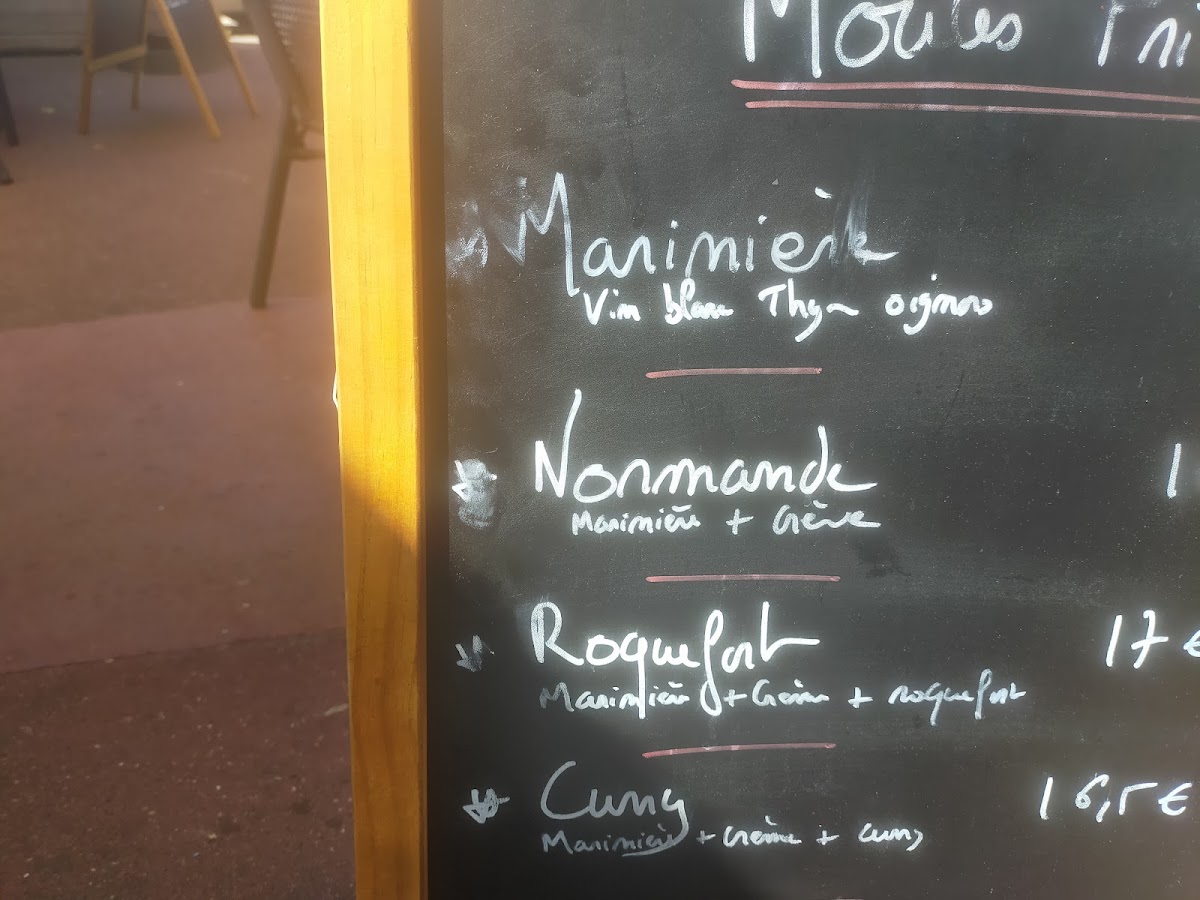 Moules Fri
Marinière
Vin blanc Thym oignons
Normande
1
Marinière + Crème
Roquefort
17 €
Marinière + Crème + roquefort
Curry
16,5 €
Marinière + Crème + curry